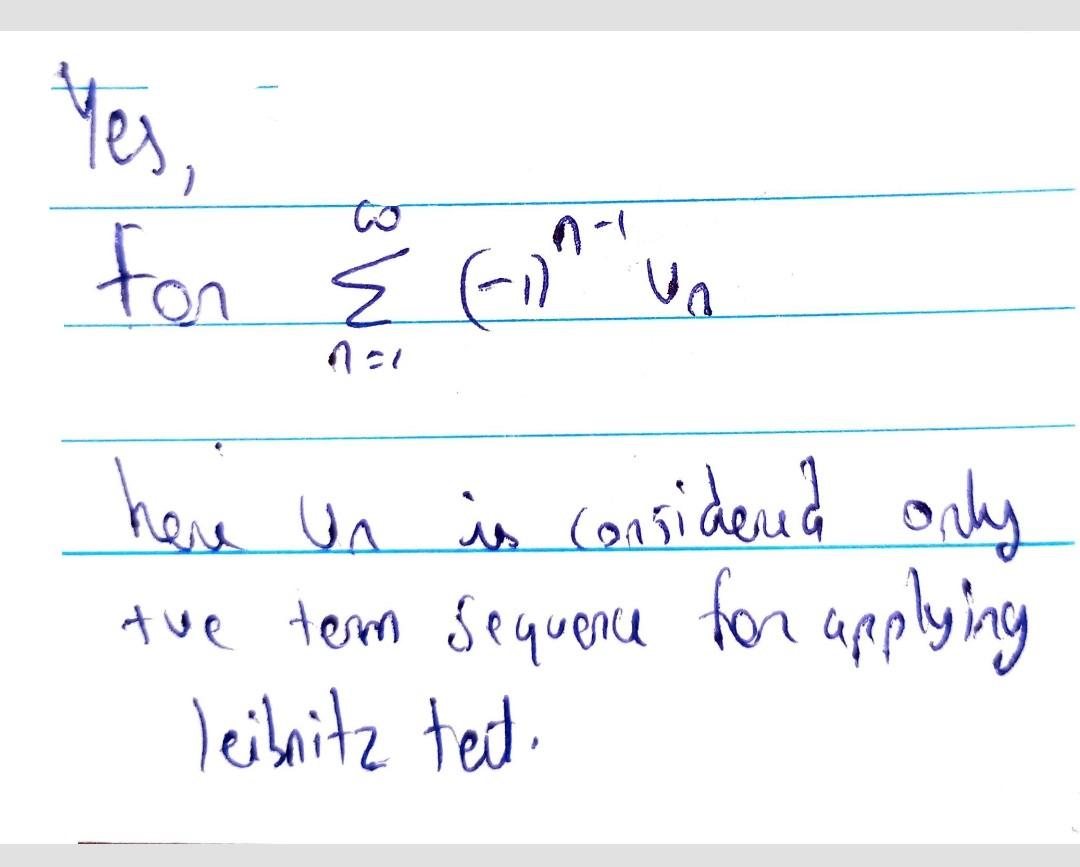 Yes,
For ∞∑n=1 (-1)^n-1 Un
here Un is considered only
+ve term sequence for applying
leibnitz test.